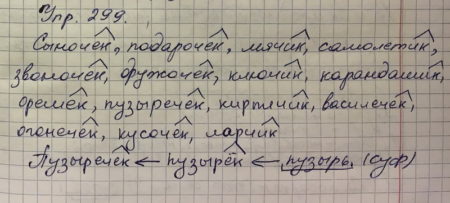 Упр. 299.
Сыночек, подарочек, мячик, самолетик,
звоночек, дружочек, ключик, карандашик,
орешек, пузыречек, кирпичик, василечек,
огонечек, кусочек, ларчик
Пузыречек ← пузырёк ← пузырь (суф)